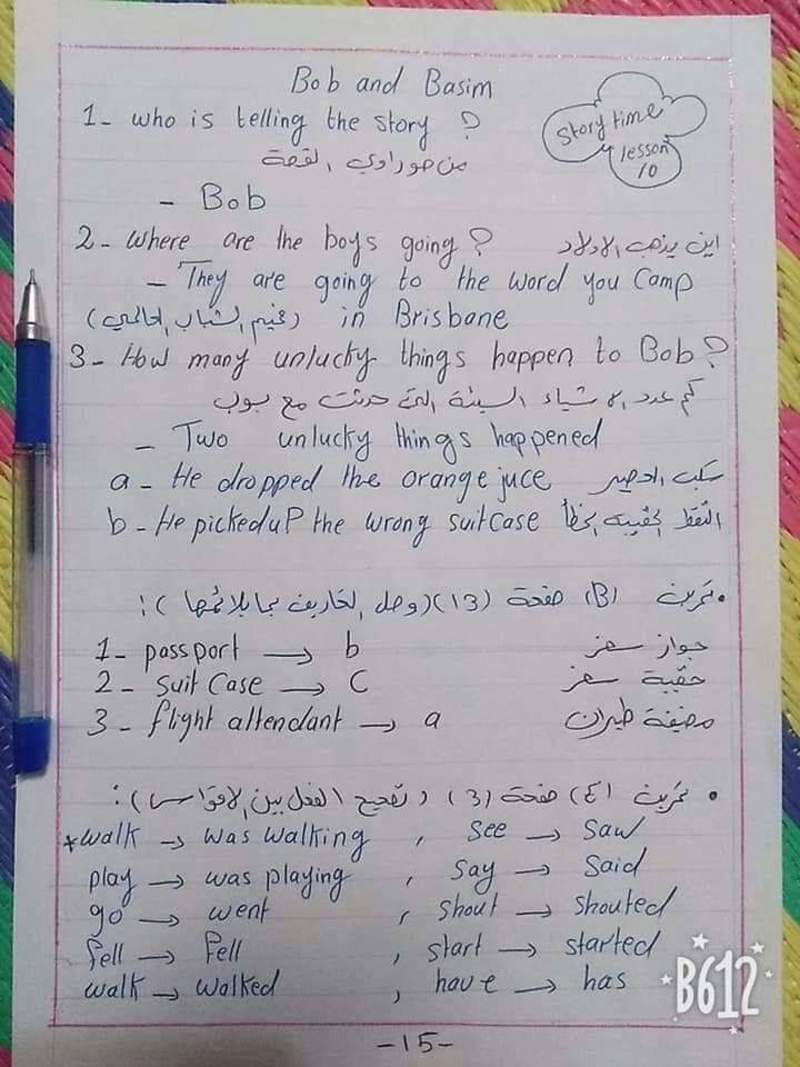 Bob and Basim
Story time
lesson
10
1- who is telling the story ?
من هو راوي القصة
- Bob
2- Where are the boys going? اين يذهب الاولاد
- They are going to the word you Camp
in Brisbane (مخيم الشباب العالمي)
3- How many unlucky things happen to Bob?
كم عدد الاشياء السيئة التي حدثت مع بوب
- Two unlucky things happened
a- He dropped the orange juce سكب العصير
b- He picked up the wrong suitcase التقط الحقيبة الخطأ
• تمرين (B) صفحة (13) (وصل التعاريف بما يلائمها):
1- passport → b جواز سفر
2- suit Case → C حقيبة سفر
3- flight attendant → a مضيفة طيران
• تمرين صفحة (3) (تصحيح الفعل بين الاقواس):
*walk → was walking , see → saw
play → was playing , say → said
go → went , shout → shouted
fell → fell , start → started
walk → walked , have → has
B612
-15-